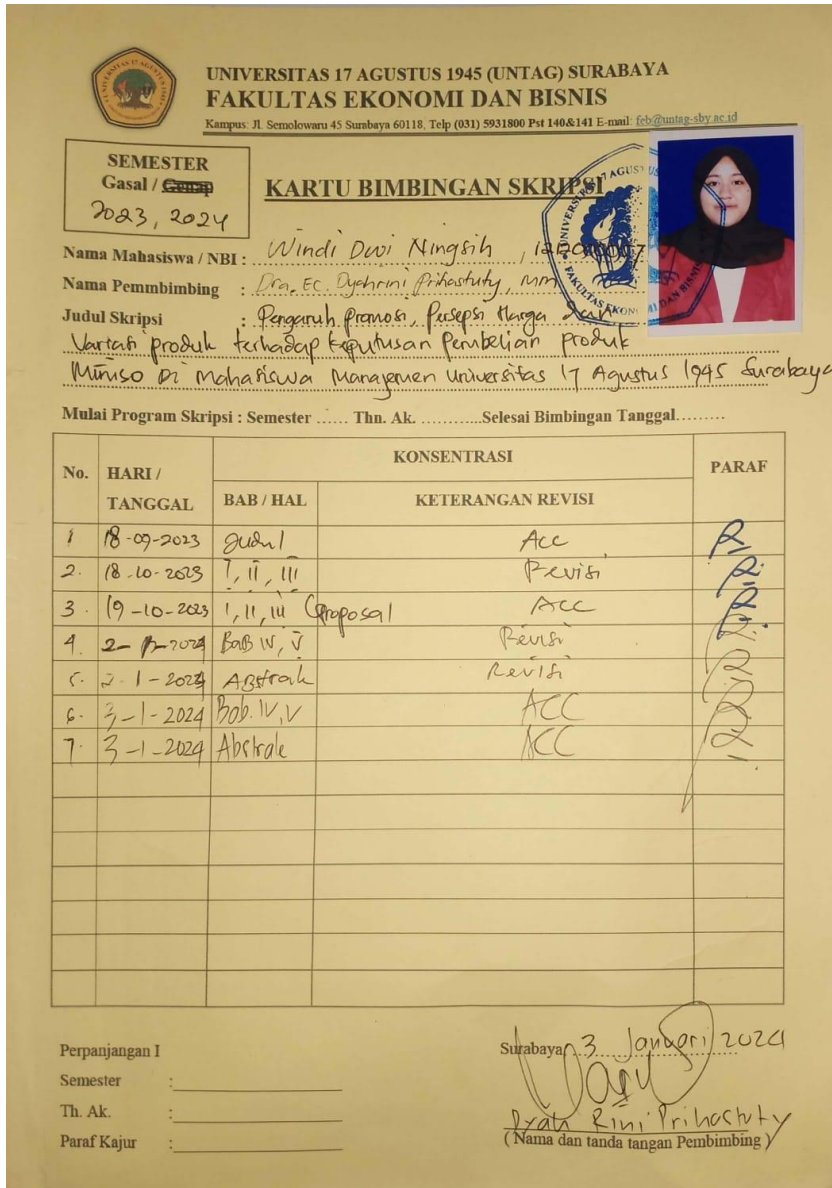 UNIVERSITAS 17 AGUSTUS 1945 (UNTAG) SURABAYA
FAKULTAS EKONOMI DAN BISNIS
Kampus: Jl. Semolowaru 45 Surabaya 60118, Telp (031) 5931800 Pst 140&141 E-mail: feb@untag-sby.ac.id
SEMESTER
Gasal / Genap
2023, 2024
KARTU BIMBINGAN SKRIPSI
Nama Mahasiswa / NBI : Windi Dwi Ningsih ,
Nama Pemmbimbing : Dra. Ec. Dyahrini Prihastuty, MM
Judul Skripsi : Pengaruh promosi, Persepsi Harga dan
Variasi produk terhadap keputusan pembelian produk
Miniso Di Mahasiswa Manajemen Universitas 17 Agustus 1945 Surabaya
Mulai Program Skripsi : Semester ...... Thn. Ak. ............Selesai Bimbingan Tanggal.........
No. HARI / TANGGAL KONSENTRASI PARAF
BAB / HAL KETERANGAN REVISI
1 18-09-2023 Judul Acc
2. 18-10-2023 I, II, III Revisi
3. 19-10-2023 I, II, III (proposal Acc
4. BaB IV, V Revisi
5. 2-1-2024 Abstrak Revisi
6. 3-1-2024 Bab. IV, V ACC
7. 3-1-2024 Abstrak ACC
Perpanjangan I
Semester :
Th. Ak. :
Paraf Kajur :
Surabaya, 3 Januari 2024
Dyah Rini Prihastuty
( Nama dan tanda tangan Pembimbing )